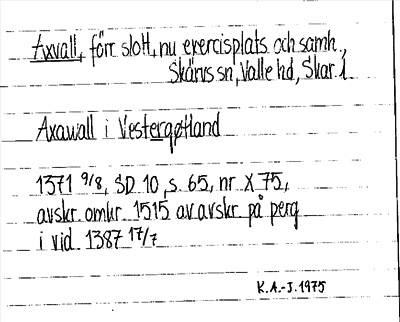 Axvall, förr slott, nu exercisplats och samh.,
Skärvs sn, Valle hd, Skar. l.
Axawall i Vestergøtland
1371 9/8, SD 10, s. 65, nr X 75,
avskr. omkr. 1515 av avskr. på perg
i vid. 1387 17/7
K.A.-J. 1975